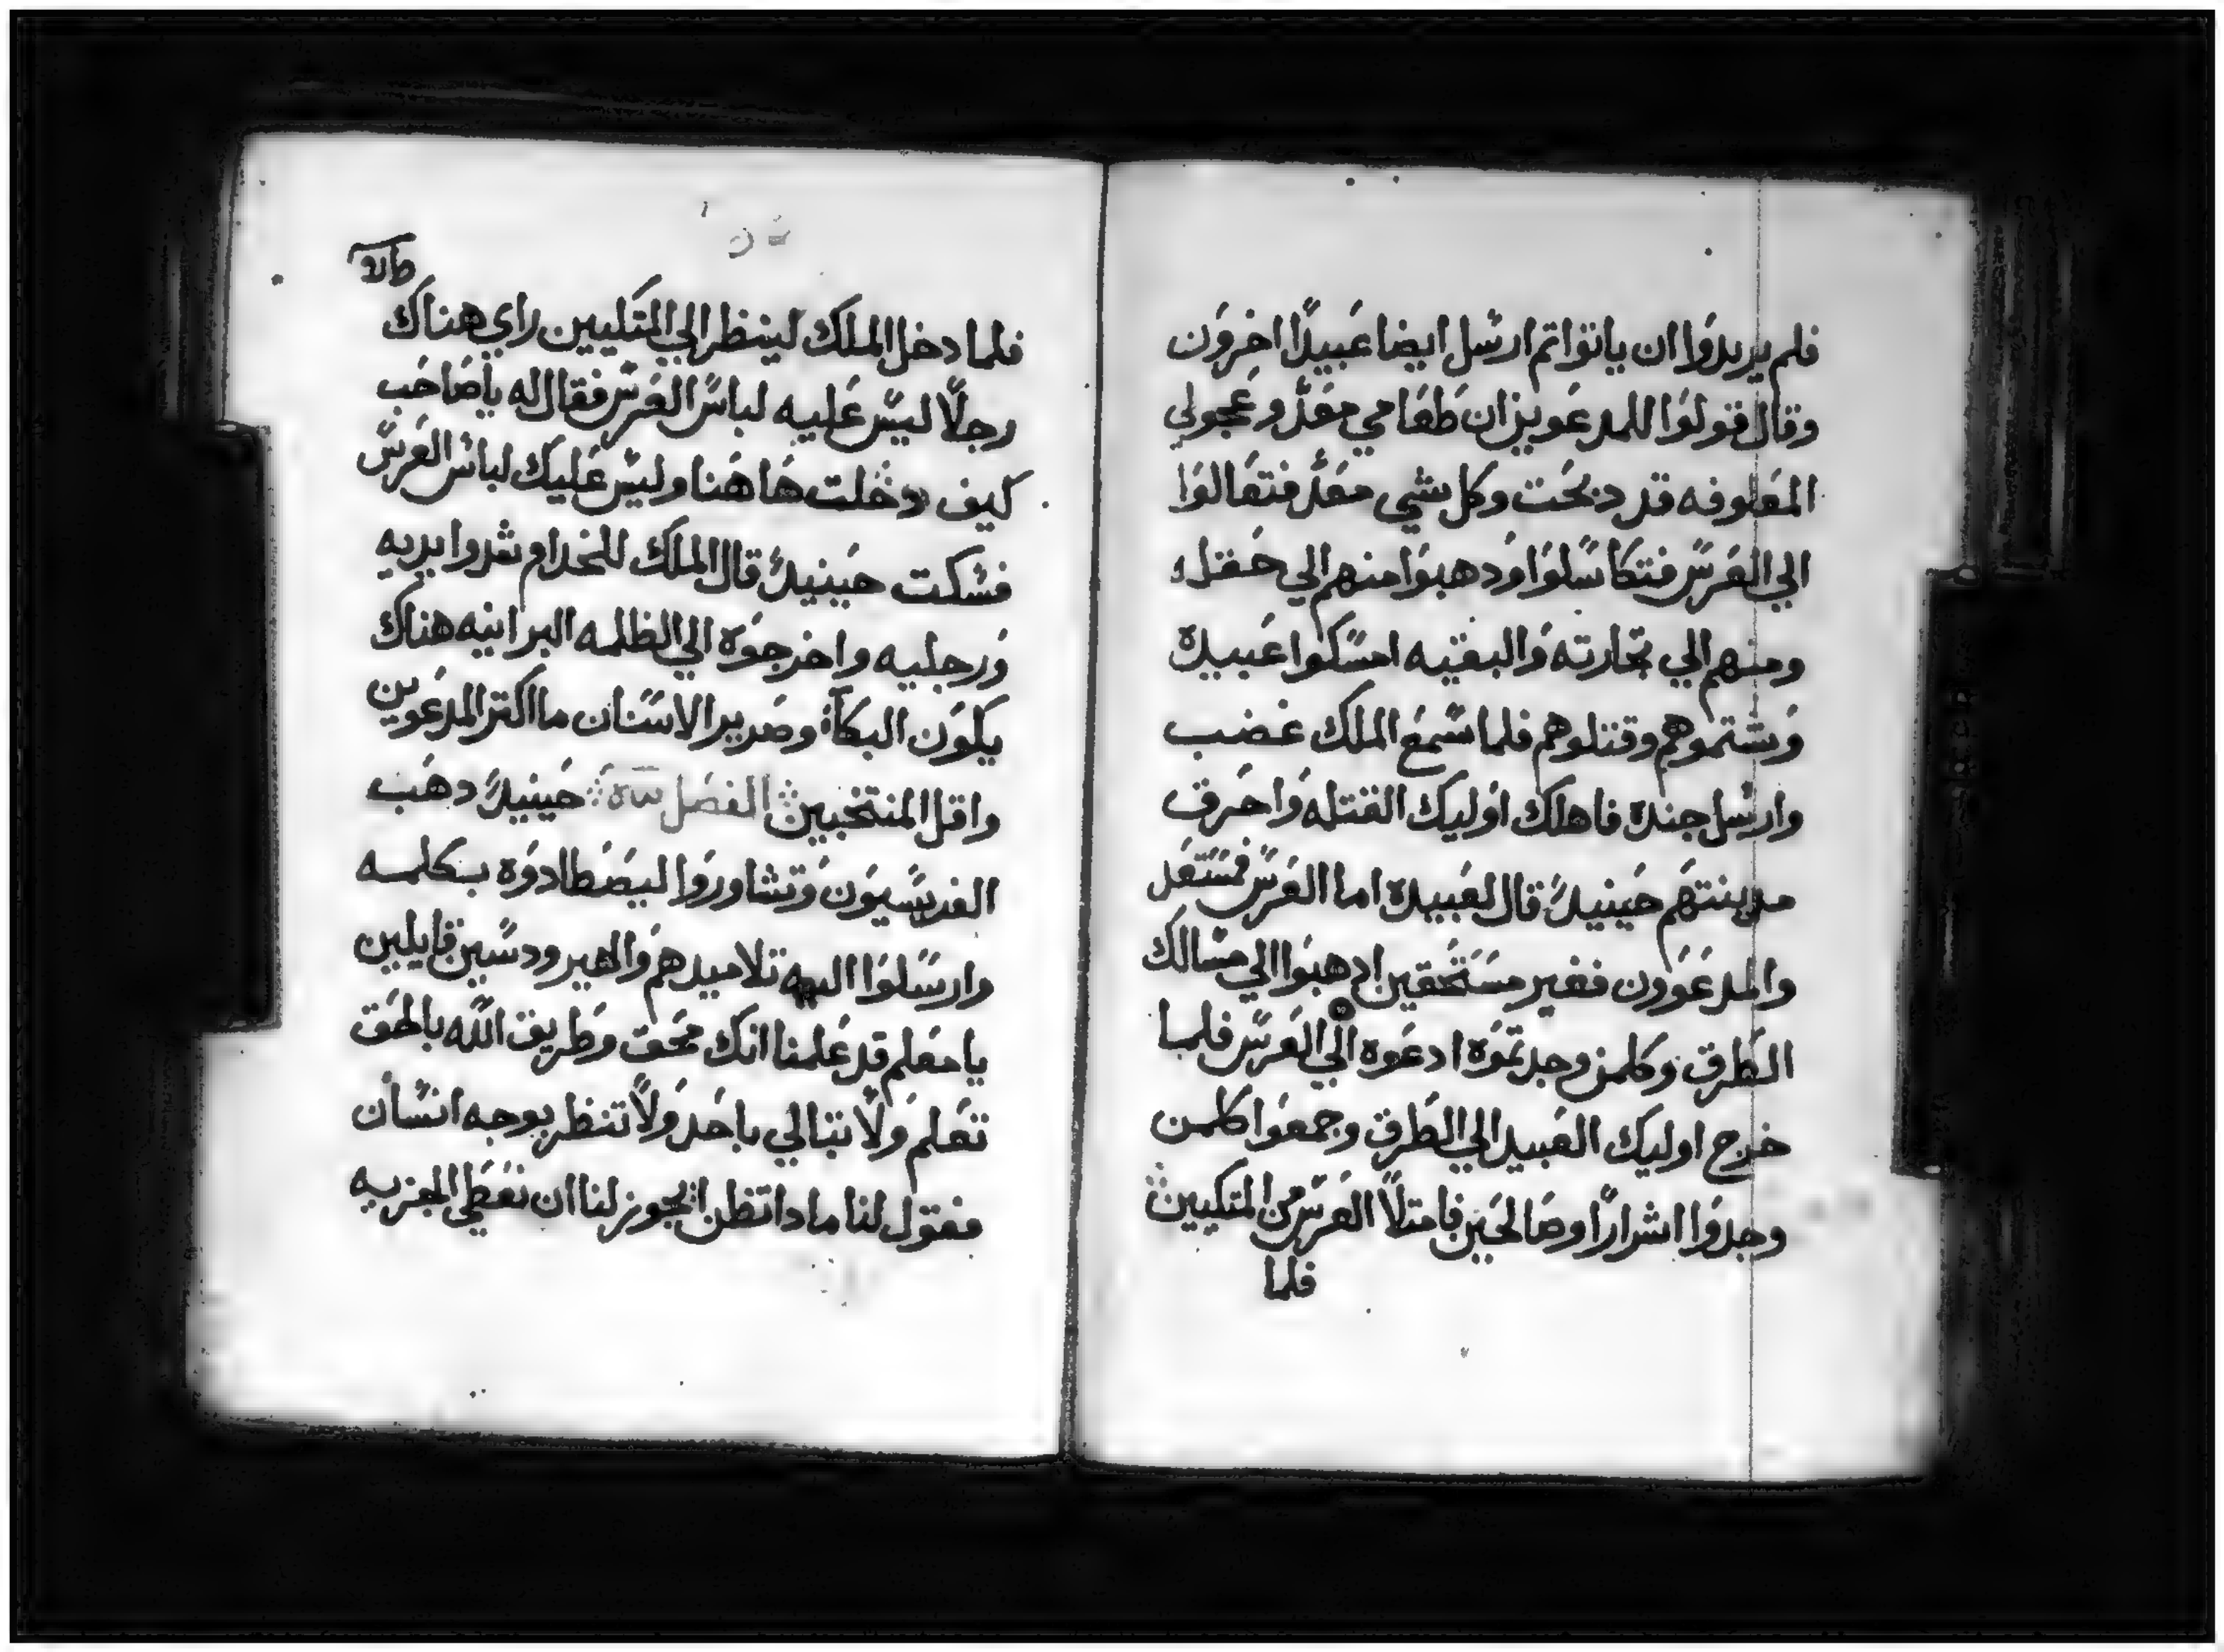 فلم يريدوا ان ياتوا تم ارسل ايضا عبيدًا اخرون
وقال قولوا للمدعوين ان طعامي معد وعجولي
المعلوفه قد دبحت وكل شي معد فتعالوا
الي العرس فتكاسلوا ودهبوا منهم الي حقله
ومنهم الي تجارته والبقيه امسكوا عبيده
وشتموهم وقتلوهم فلما سمع الملك غضب
وارسل جنده فاهلك اوليك القتله واحرق
مدينتهم حينيدً قال لعبيده اما العرس فمستعد
والمدعوون فغير مستحقين ادهبوا الي مسالك
الطرق وكلمن وجدتموه ادعوه الي العرس فلما
خرج اوليك العبيد الي الطرق وجمعوا كلمن
وجدوا اشرارًا وصالحين فامتلاً العرس من المتكيين
فلما
فلما دخل الملك لينظر الي المتكيين راي هناك
رجلاً ليس عليه لباس العرس فقال له ياصاحب
كيف دخلت هاهنا وليس عليك لباس العرس
فسكت حينيدً قال الملك للخدام شدوا يديه
ورجليه واخرجوه الي الظلمه البرانيه هناك
يكون البكآ وصرير الاسنان ما اكتر المدعوين
واقل المنتخبين الفصل حينيدً دهب
الفريسيون وتشاوروا ليصطادوه بكلمه
وارسلوا اليه تلاميدهم والهيرودسين قايلين
يامعلم قد علمنا انك محق وطريق الله بالحق
تعلم ولا تبالي باحد ولا تنظر بوجه انسان
فقول لنا مادا تظن ايجوز لنا ان نعطي الجزيه